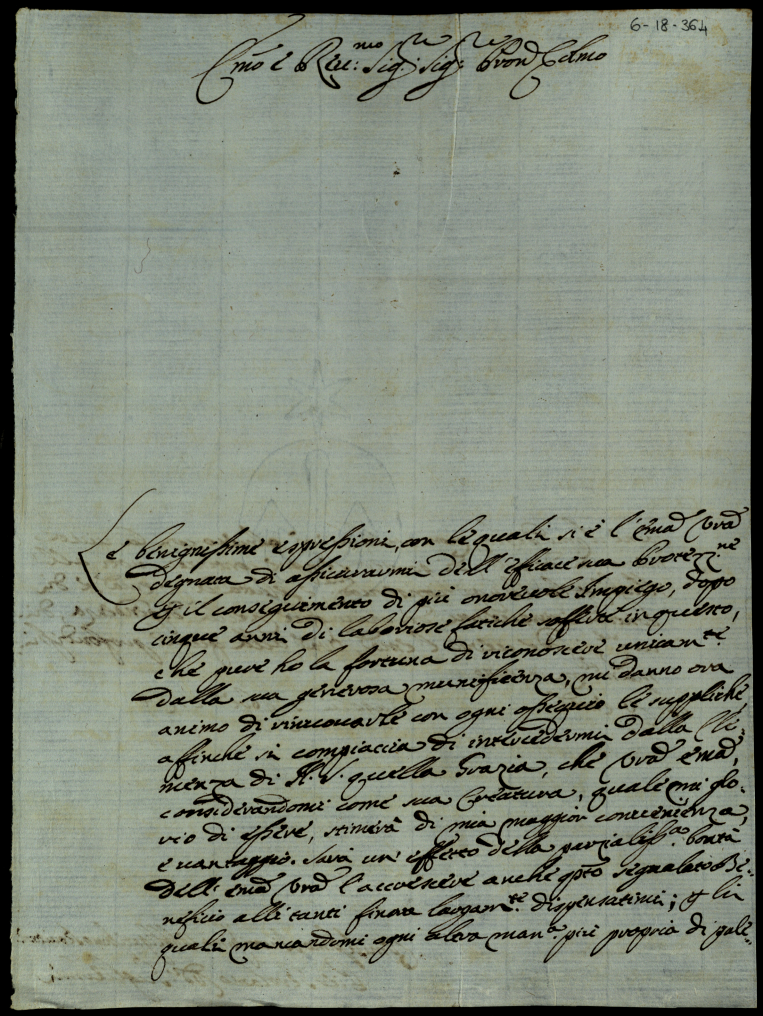 6-18-364
Emo e Reu:mo Sig:re Sig:re Pron Colmo
Le benignissime espressioni, con le quali si è l'Ema Vra
degnata di assicurarmi dell'efficacissa Protezz:ne
p il conseguimento di più onoreuole Impiego, dopo
cinque anni di laboriose fatiche sofferte in questo,
che pure ho la fortuna di riconoscere unicam:te
dalla sua generosa munificenza, mi danno ora
animo di rinouarle con ogni ossequio le suppliche,
affinche si compiaccia di intercedermi dalla Cle:
menza di N. S. quella Grazia, che Vra Ema,
considerandomi come sua Creatura, quale mi glo:
rio di essere, stimerà di mia maggior conuenienza,
e uantaggio. Sarà un effetto della parzialiss:a bontà
dell'Ema Vra l'accrescere anche qto segnalato Be:
neficio alli tanti finora largam:te dispensatimi; p li
quali mancandomi ogni altra man:a più propria di pale: